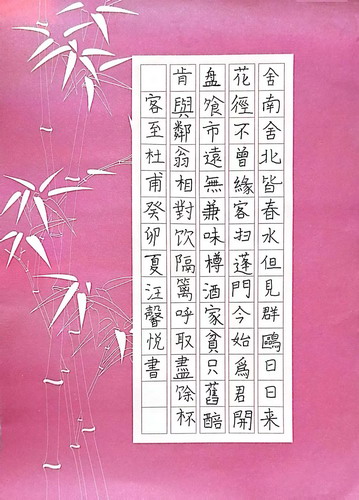 舍南舍北皆春水但見群鷗日日来
花徑不曾緣客扫蓬門今始爲君開
盘飧市遠無兼味樽酒家貧只舊醅
肯與鄰翁相對饮隔籬呼取盡馀杯
客至杜甫癸卯夏汪馨悦書